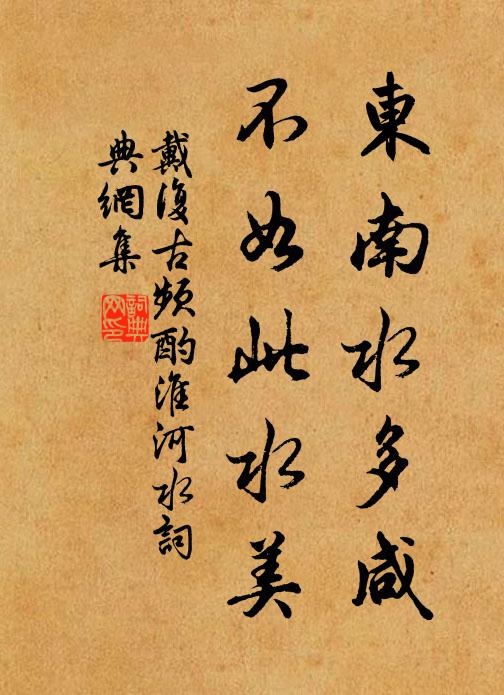 東南水多咸
不如此水美
戴復古頻酌淮河水詞
典網集
詞典網印